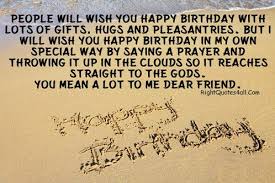 PEOPLE WILL WISH YOU HAPPY BIRTHDAY WITH
LOTS OF GIFTS, HUGS AND PLEASANTRIES. BUT I
WILL WISH YOU HAPPY BIRTHDAY IN MY OWN
SPECIAL WAY BY SAYING A PRAYER AND
THROWING IT UP IN THE CLOUDS SO IT REACHES
STRAIGHT TO THE GODS.
YOU MEAN A LOT TO ME DEAR FRIEND.
RightQuotes4all.com
Happy
Birthday